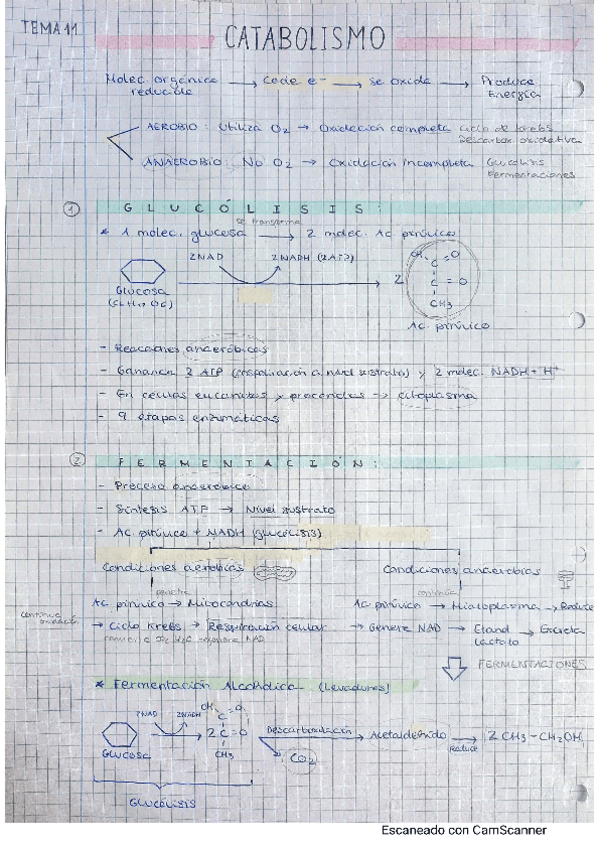 TEMA 11
CATABOLISMO
Molec. orgánica reducida → Cede e- → Se oxida → Produce Energía
AEROBIO: Utiliza O2 → Oxidación completa Ciclo de Krebs
Descarbox. oxidativa
ANAEROBIO: No O2 → Oxidación Incompleta Glucólisis
Fermentaciones
1 GLUCÓLISIS:
se transforma
* 1 molec. glucosa → 2 molec. Ac pirúvico
2NAD 2NADH (2ATP)
Glucosa
2
C = O
CH3
Ac. pirúvico
- Reacciones anaeróbicas
- Ganancia 2 ATP (fosforilación a nivel sustrato) y 2 molec. NADH + H+
- En células eucariotas y procariotas → citoplasma
- 9 etapas enzimáticas
2 FERMENTACIÓN:
- Proceso anaerobico
- Síntesis ATP → Nivel sustrato
- Ac. pirúvico + NADH (glucólisis)
Condiciones aerobias Condiciones anaerobias
penetra continúa
Ac pirúvico → Mitocondrias Ac pirúvico → Hialoplasma → Reduce
continua oxidación → Ciclo Krebs → Respiración celular
→ Genera NAD → Etanol Lactato → Excreta
FERMENTACIONES
* Fermentación Alcohólica (Levaduras)
2NAD 2NADH
Glucosa
2 C = O
CH3
Descarboxilación
CO2
Acetaldehído
Reduce
2 CH3-CH2OH
GLUCÓLISIS
Escaneado con CamScanner